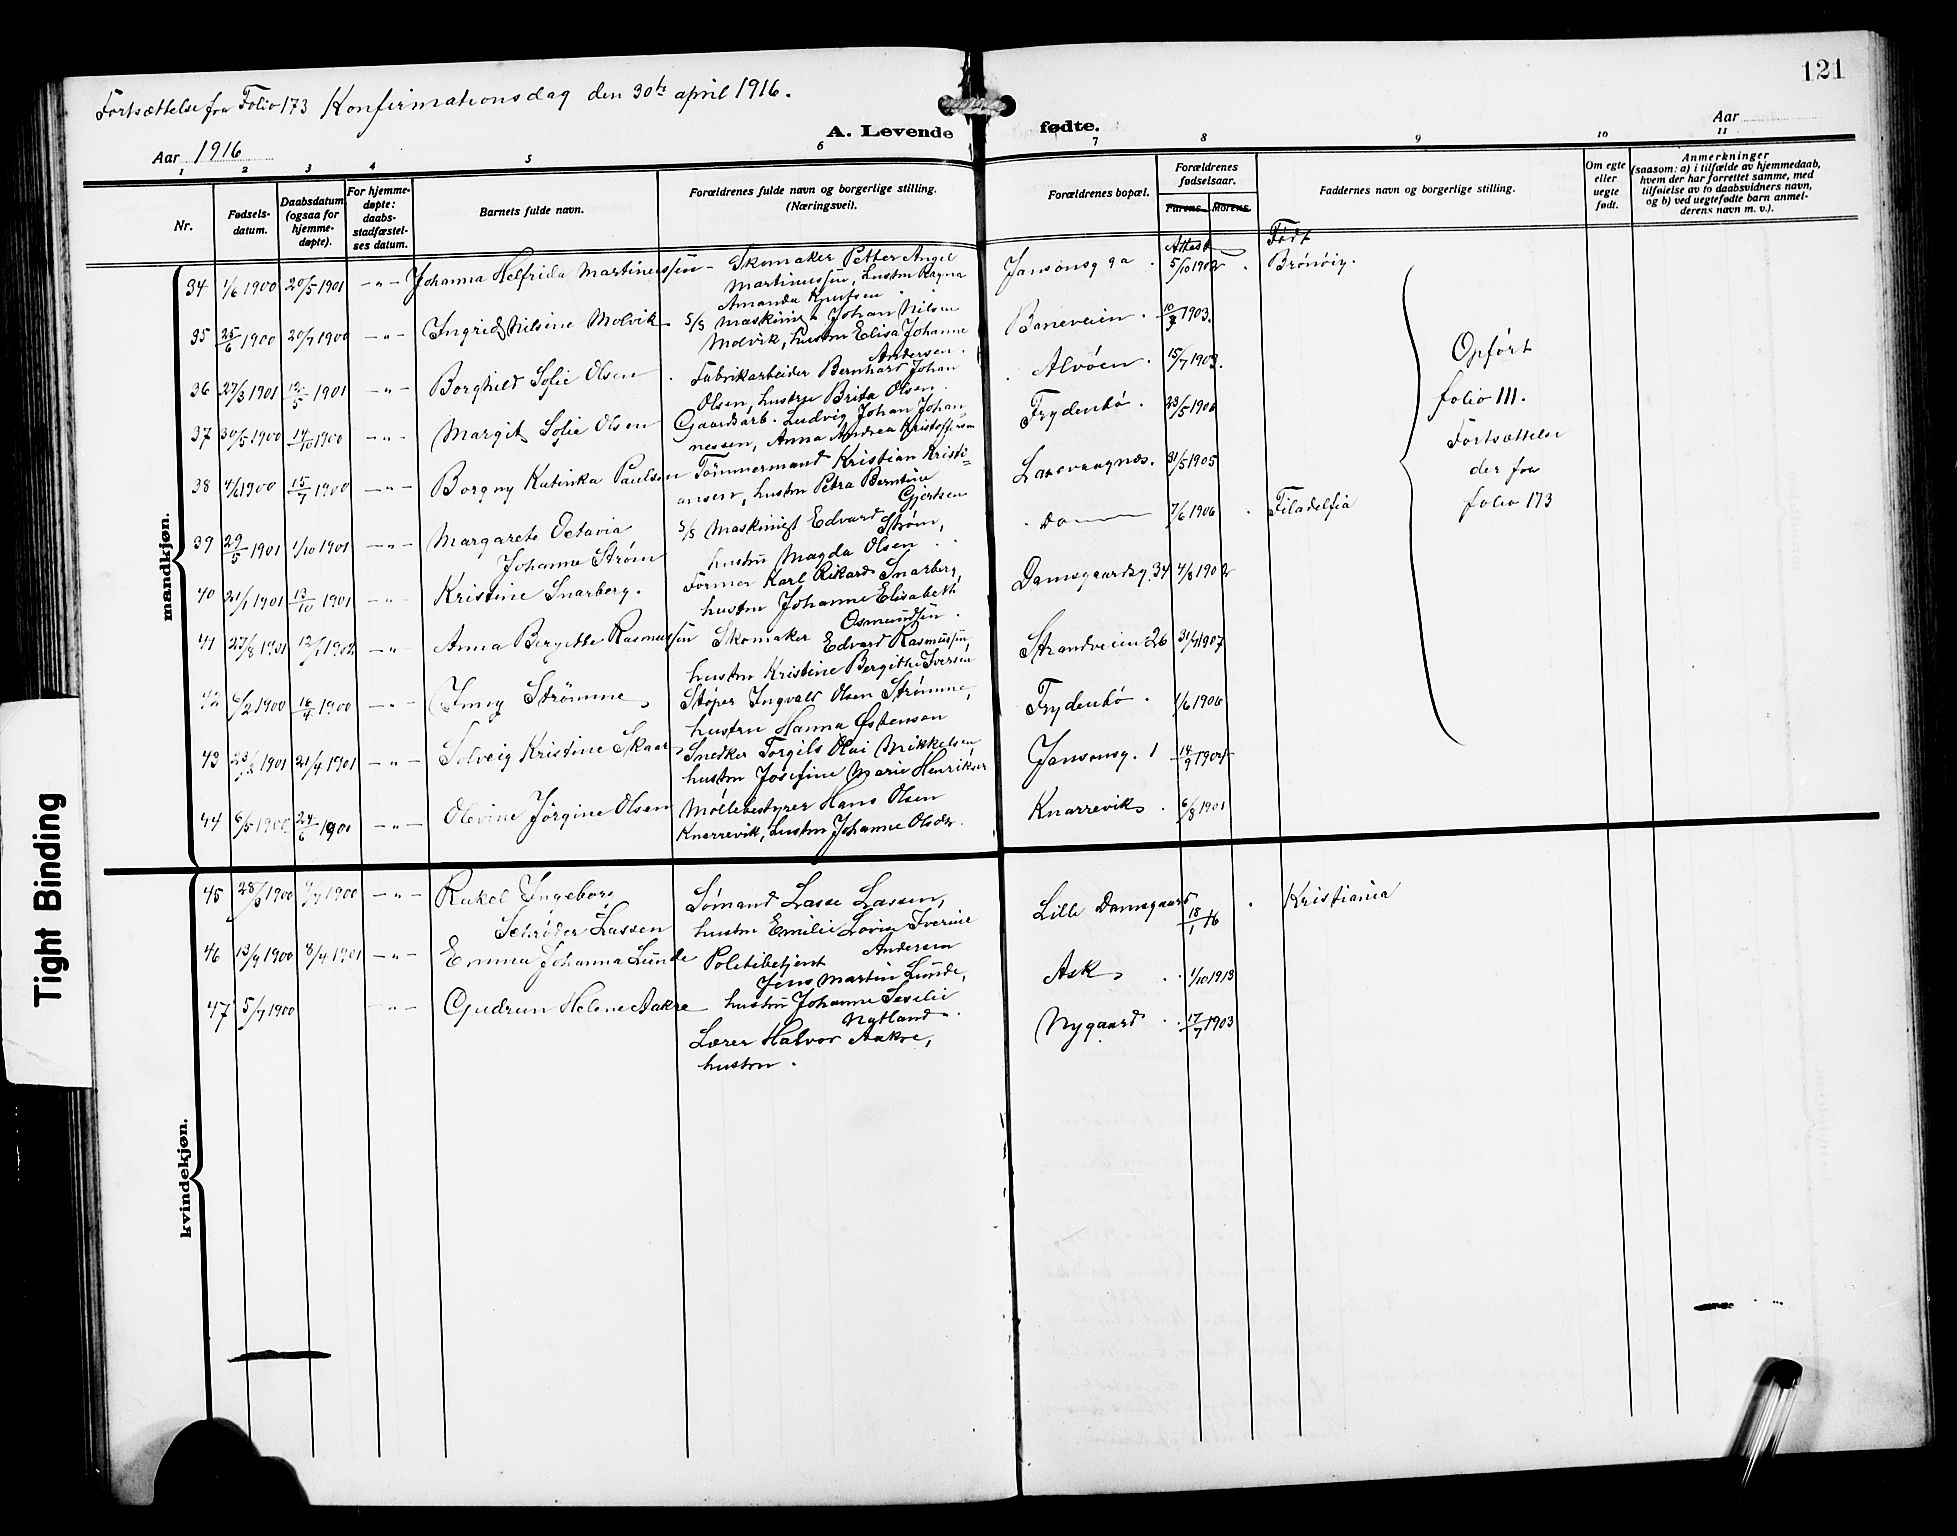 121
Fortsættelse fra Folio 173 Konfirmationsdag den 30te april 1916.
A. Levende fødte.
Aar 1916
Aar
1 2 3 4 5 6 7 8 9 10 11
Nr.
Fødsels-
datum.
Daabsdatum
(ogsaa for
hjemme-
døpte).
For hjemme-
døpte:
daabs-
stadfæstel-
ses datum.
Barnets fulde navn.
Forældrenes fulde navn og borgerlige stilling.
(Næringsvei).
Forældrenes bopæl.
Forældrenes
fødselsaar.
Farens Morens
Faddernes navn og borgerlige stilling.
Om egte
eller
uegte
født.
Anmerkninger
(saasom: a) i tilfælde av hjemmedaab,
hvem der har forrettet samme, med
tilføielse av to daabsvidners navn,
og b) ved uegtefødte barn anmel-
derens navn m. v.).
mandkjøn.
Attest
Født
34 1/6 1900 20/5 1901 -"- Johanna Helfrida Martinussen - Skomaker Petter Angel
Martinussen, hustru Ragna
Amanda Knutsen
Jansonsg 9a 5/10 1902 Brönöig.
35 25/6 1900 20/7 1900 -"- Ingrid Nilsine Molvik S/S Maskinist Johan Nilsen
Molvik, hustru Elisa Johanne
Andersen.
Baneveien 1903.
36 27/3 1901 12/5 1901 -"- Borghild Sofie Olsen Fabrikarbeider Bernhard Johan
Olsen, hustru Brita Olsen.
Alvöen 15/7 1903.
37 30/5 1900 14/10 1900 -"- Margit Sofie Olsen Gaardsarb. Ludvig Johan Johan-
nessen, Anna Andrea Kristoffersen
Frydenbö 23/5 1906
38 4/6 1900 15/7 1900 -"- Borgny Katinka Paulsen Tömmermand Kristian Kristi-
ansen, hustru Petra Berntine
Gjertsen
Laxevaagnes. 31/5 1905
39 29/5 1901 1/10 1901 -"- Margarete Octavia
Johanne Ström
S/S Maskinist Edvard Ström,
hustru Magda Olsen
do 7/6 1906 Filadelfia
40 21/1 1901 13/10 1901 -"- Kristine Snarberg. Former Karl Rikard Snarberg,
hustru Johanne Elisabeth
Osmundsen
Damsgaardsg. 34 4/8 1902
41 27/8 1901 12/1 1902 -"- Anna Bergitte Rasmussen Skomaker Edvard Rasmussen,
hustru Kristine Bergithe Iversen
Strandveien 26 1907
42 6/2 1900 16/4 1900 -"- Strömme Støper Ingvald Olsen Strömme,
hustru Hanna Østensen
Frydenbö 1/6 1906
43 1901 21/4 1901 -"- Solveig Kristine Skaar Snedker Torgils Olai Mikkelsen
hustru Josefine Marie Henriksen
Jansonsg. 1 14/9 1904
44 6/5 1900 24/6 1900 -"- Olevine Jörgine Olsen Möllebestyrer Hans Olsen
Knarrevik, hustru Johanne Olsdtr.
Knarrevik 6/8 1901
Opfört
folio 111.
Fortsættelse
der fra
folio 173
kvindekjøn.
45 1900 1900 -"- Rakel Ingeborg
Schrøder Lassen
Sømand Lasse Lassen,
hustru Emilie Lovise Iverine
Andersen
Lille Damsgaard 18/1 16 Kristiania
46 13/9 1900 8/4 1901 -"- Emma Johanna Lunde Politibetjent
Jens Martin Lunde,
hustru Johanne Seselie
Nytland
Ask 1/10 1913
47 5/7 1900 -"- Gudrun Helene Aakre
Lærer Halvor Aakre,
hustru
Nygaard 17/7 1903
Tight Binding